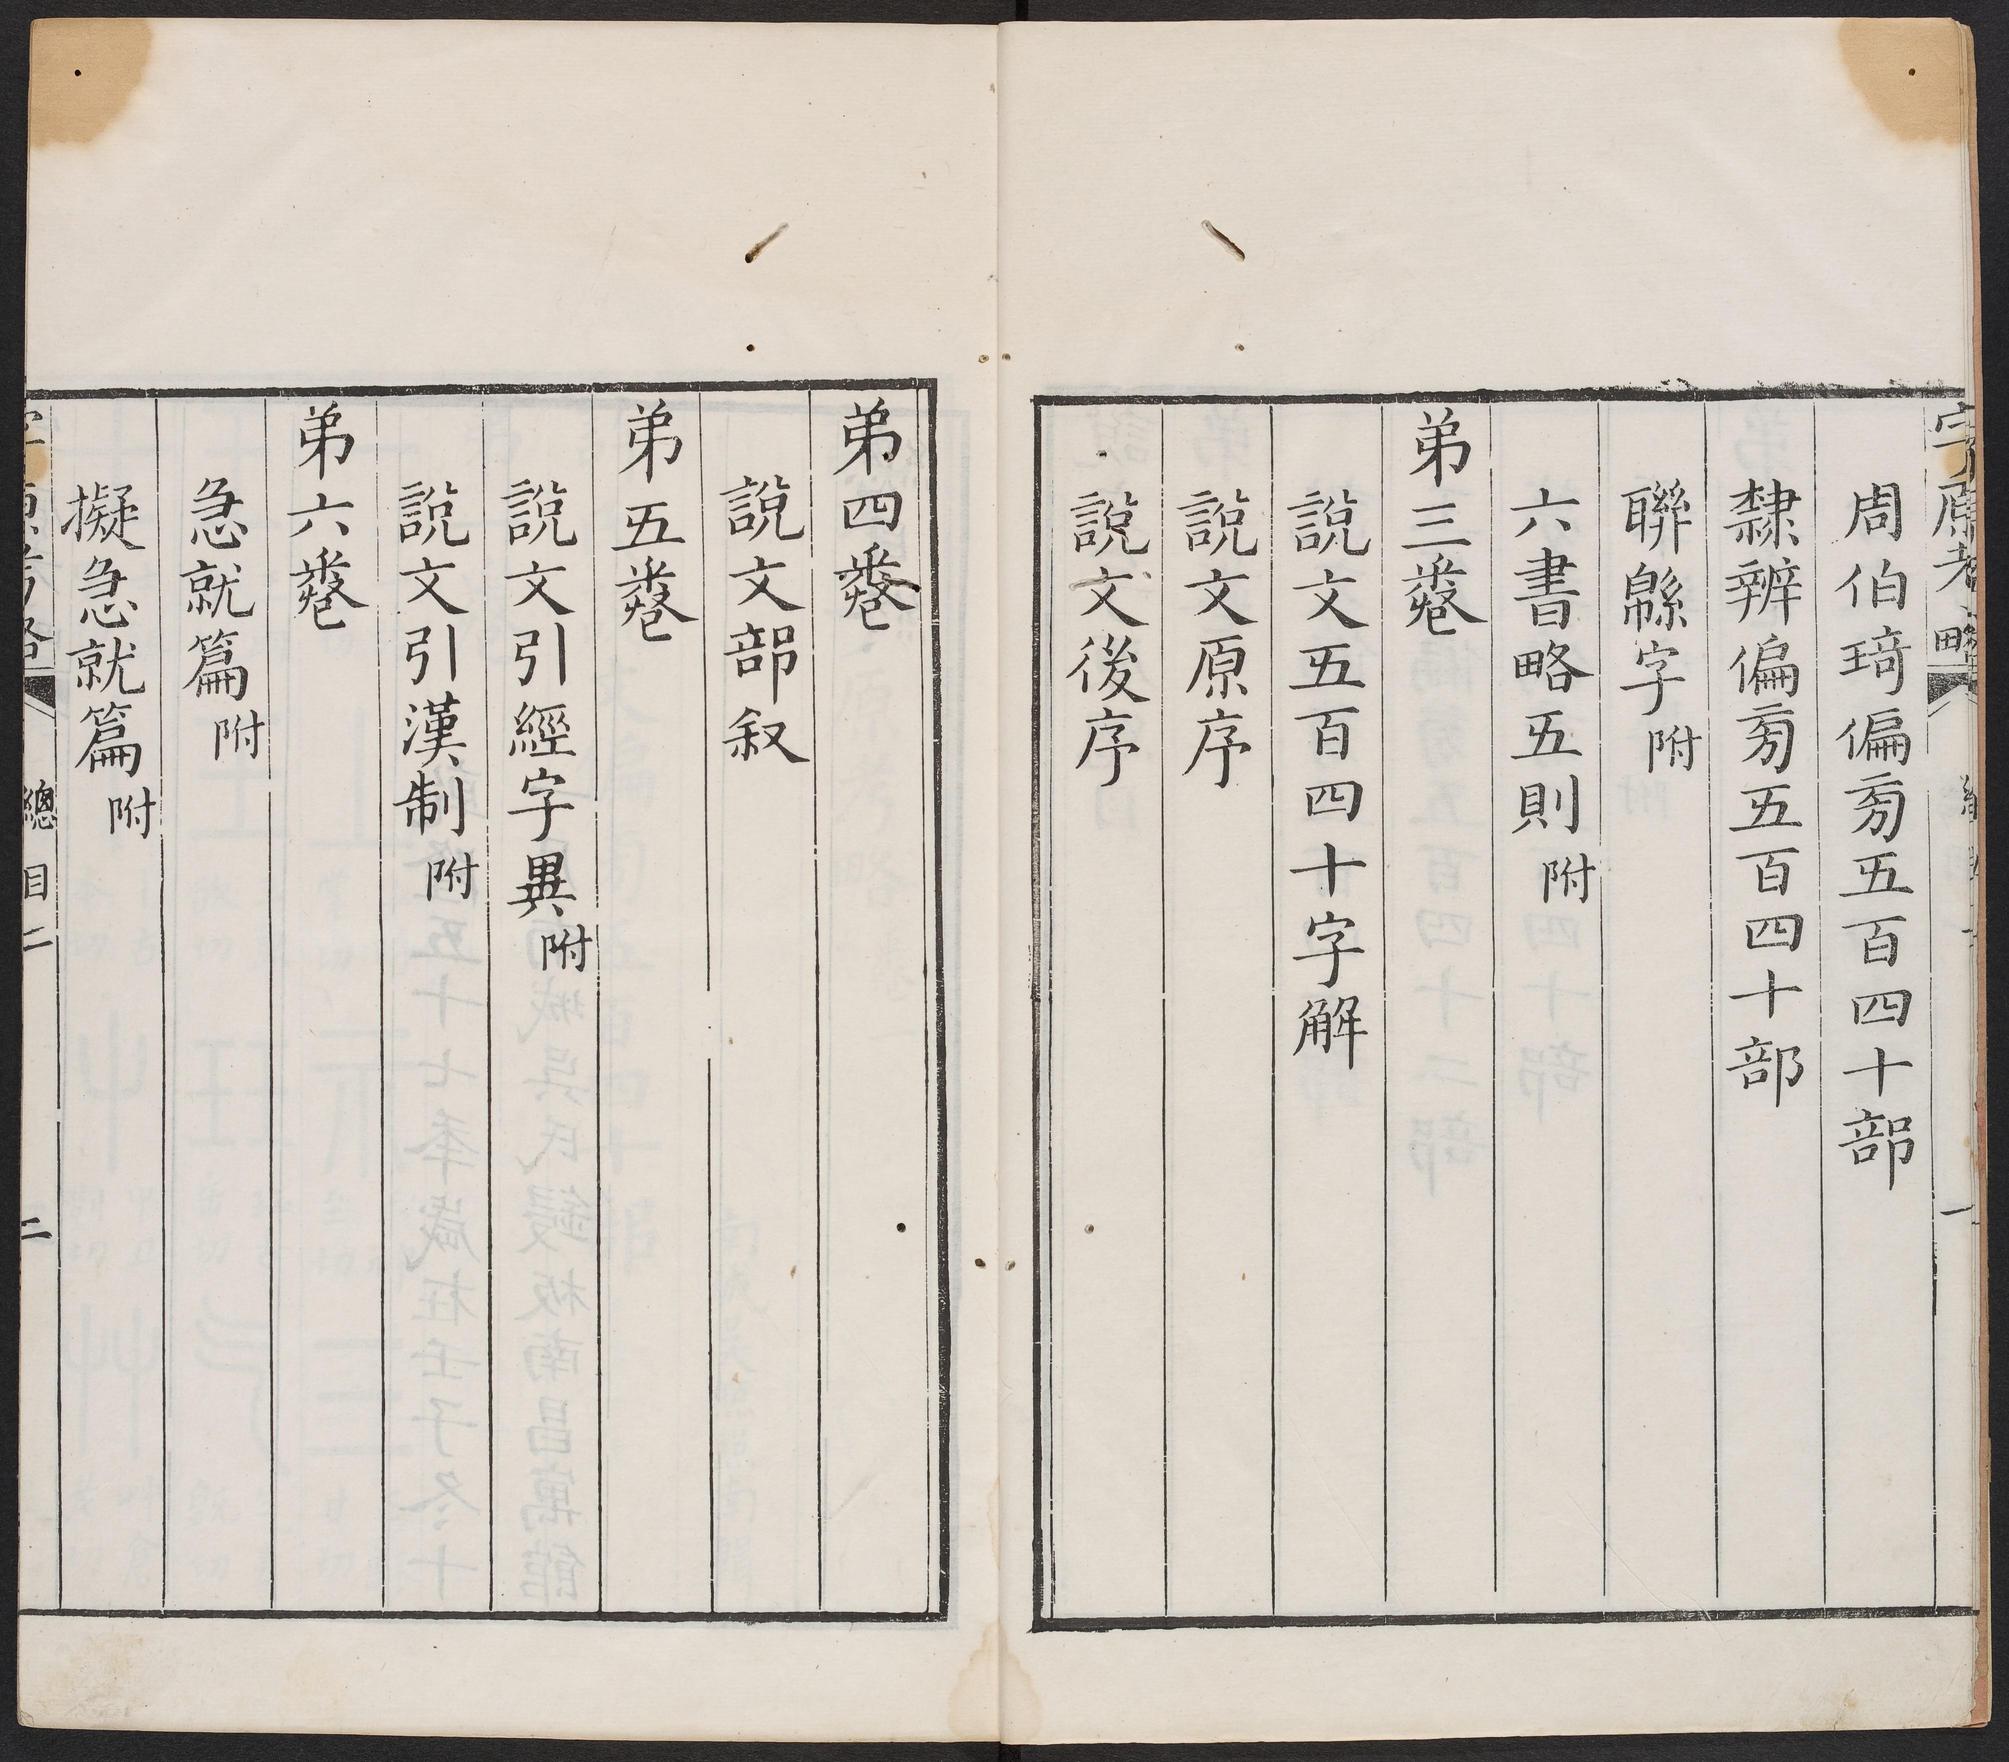 字原考略
周伯琦偏㫄五百四十部
隸辨偏㫄五百四十部
聯緜字附
六書略五則附
弟三卷
說文五百四十字解
說文原序
說文後序
弟四卷
說文部叙
弟五卷
說文引經字異附
說文引漢制附
弟六卷
急就篇附
擬急就篇附
總目二
二